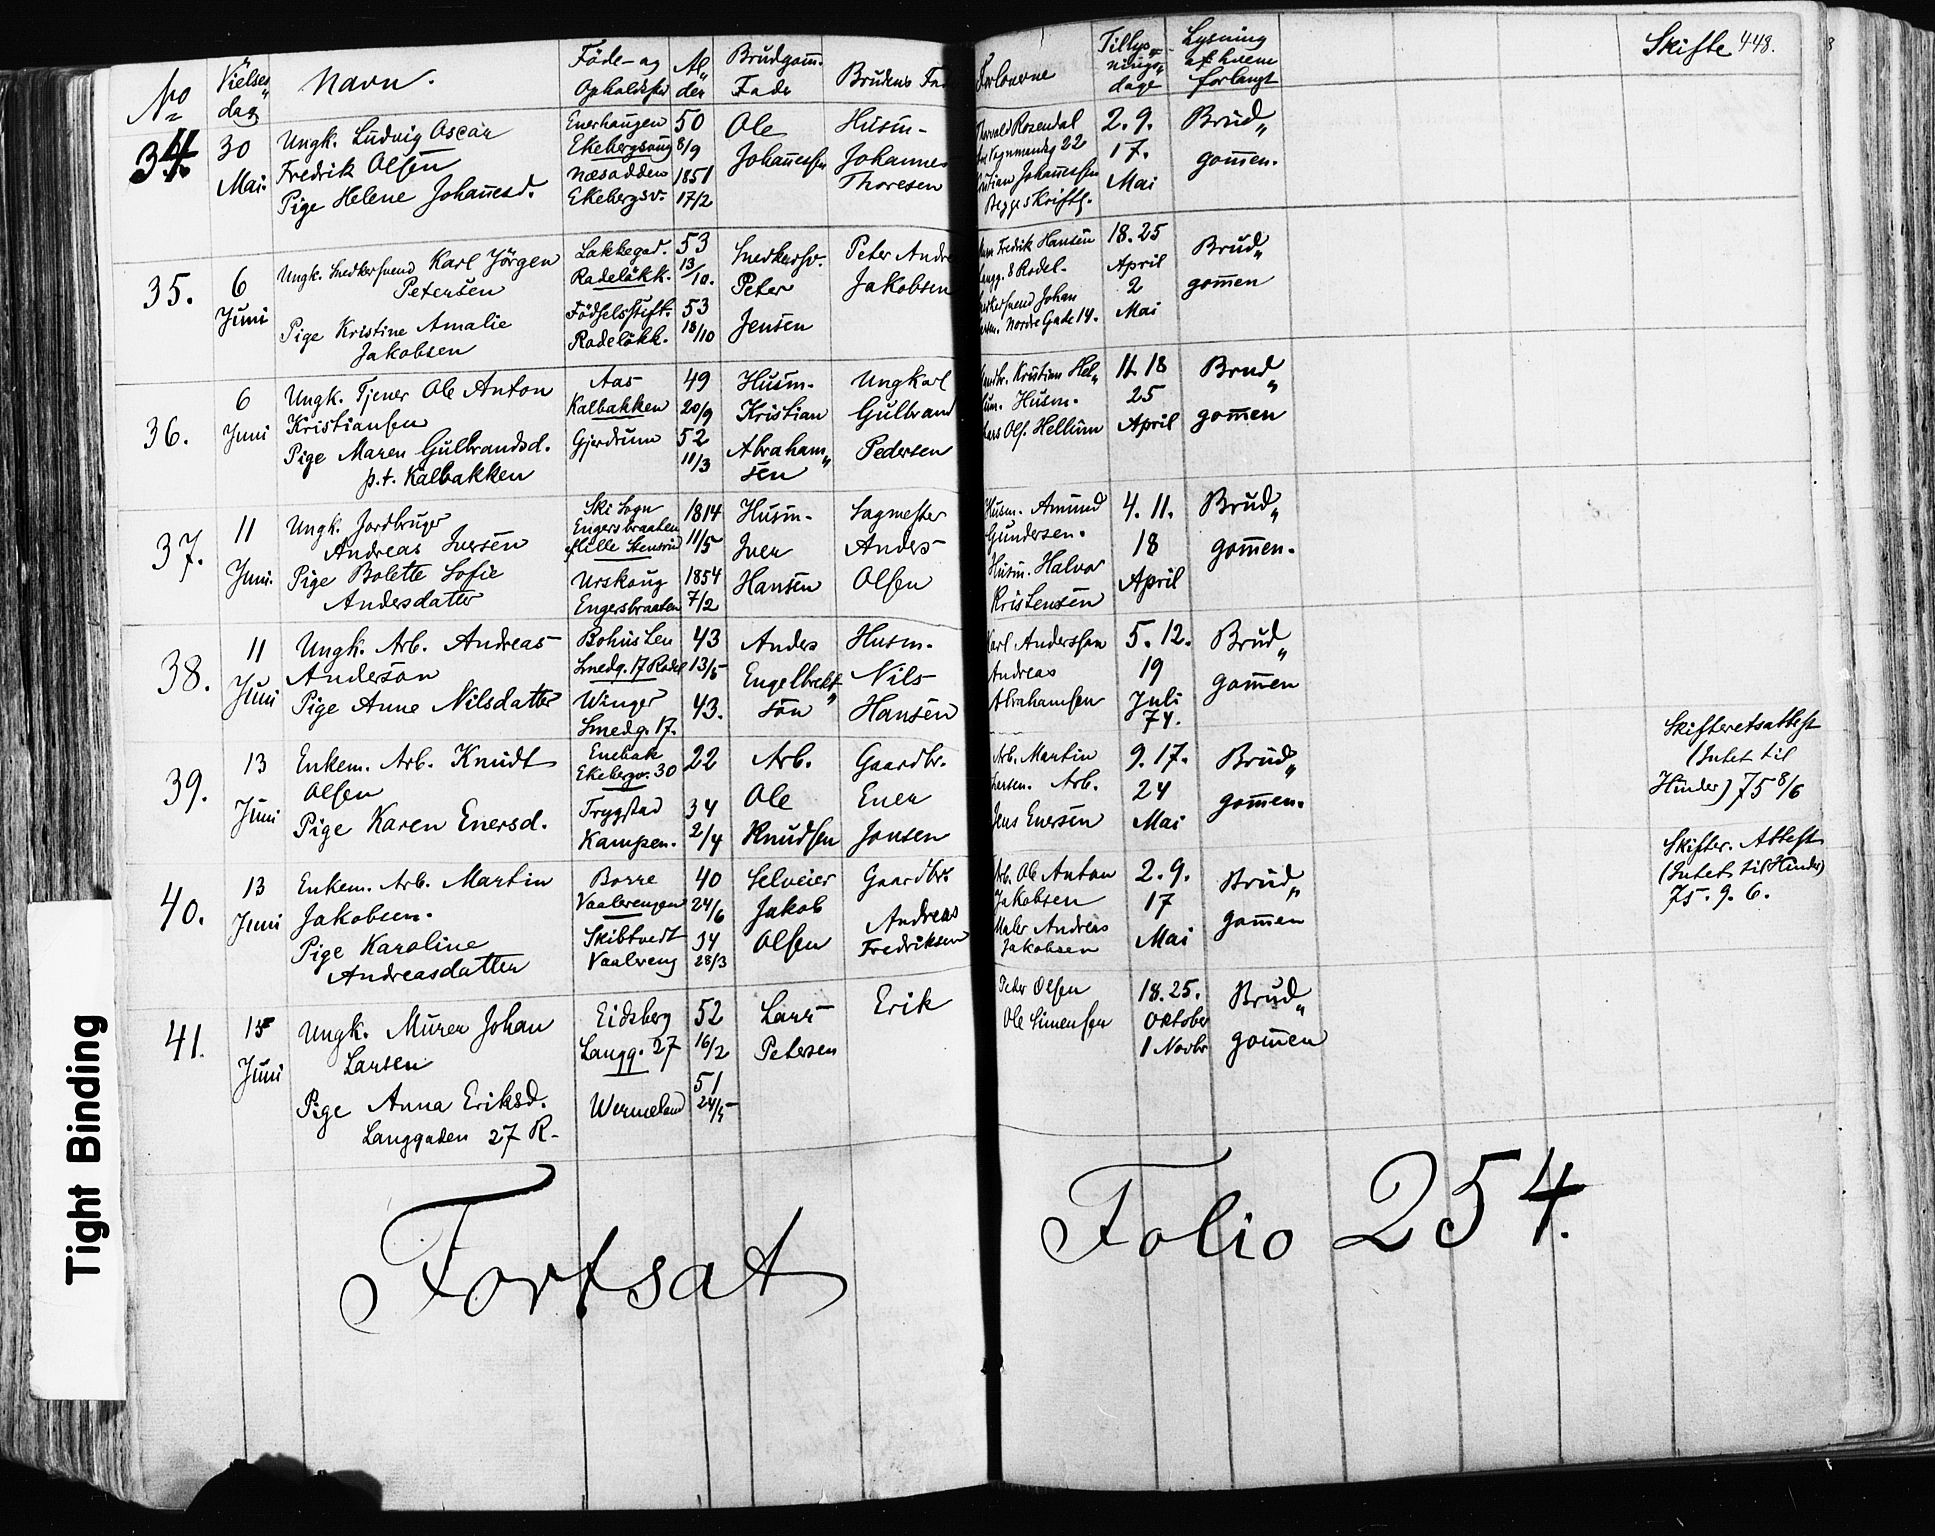 No Vielses„ dag Navn. Föde- og Opholdssted Al„ der Brudgom̄. Fader Brudens Fader Forlovere Tillys„ nings„ dage Lysning af hvem forlangt Skifte 448.
34. 30 Mai.
Ungk. Ludvig Oscar
Fredrik Olsen
Pige Helene Johan̄esd.
Enerhaugen
Ekebergsaug
Næsodden
Ekebergsv.
50
8/9
1851
17/2
Ole
Johan̄essen
Husm-
Johannes
Thoresen
Rosendal
22
Johan̄essen
Begge Skriftl.
2. 9.
17.
Mai
Brud„
gom̄en.
35. 6 Juni
Ungk. Snedkersvend Karl Jörgen
Petersen
Pige Kristine Amalie
Jakobsen
Lakkegad.
Rodelökk.
Födselsstift.
Rodelökk.
53
13/10.
53
18/10
Snedkersv.
Peter
Jensen
Peter Andre
Jakobsen
Fredik Hansen
8 Rodel.
Johan
Nordre Gade 14.
18. 25
April
2
Mai
Brud„
gom̄en
36. 6 Juni
Ungk. Tjener Ole Anton
Kristiansen
Pige Maren Gulbrandsd.
p.t. Kalbakken
Aas
Kalbakken
Gjerdrum
49
20/9
52
11/3
Husm.
Kristian
Abraham„
sen
Ungkarl
Gulbrand
Pedersen
Kristian Hel„
lum. Husm.
Lars Ols. Hellum
11. 18
25
April
Brud„
gom̄en
37. 11 Juni.
Ungk. Jordbruger
Andreas Iversen
Pige Bolette Sofie
Andersdatter
Ski Sogn
Engersbraaten
Urskoug
Engersbraaten
1814
11/5
1854
7/2
Husm-
Iver
Hansen
Sagmester
Anders
Olsen
Husm. Amund
Gundersen.
Husm. Halvor
Kristensen
4. 11.
18
April
Brud„
gom̄en.
38. 11 Juni
Ungk. Arb. Andreas
Anderson
Pige Anne Nilsdatter
Bohuslen
Smedg. 17 Rodel
Winger
Smedg. 17.
43
13/5
43.
Anders
Engelbrekt„
son
Husm.
Nils
Hansen
Karl Anderssen
Andreas
Abrahamsen
5. 12.
19
Juli
74.
Brud„
gom̄en
39. 13 Juni
Enkem. Arb. Knudt
Olsen
Pige Karen Enersd.
Enebak
Ekebergv. 30
Trygstad
Kampen.
22
34
2/4
Arb.
Ole
Knudsen
Gaardbr.
Ener
Jonsen
Arb. Martin
Larsen. Arb.
Jens Enersen
9. 17.
24
Mai
Brud„
gom̄en.
Skifteretsattest
(Intet til
Hinder) 75 8/6
40. 13 Juni
Enkem. Arb. Martin
Jakobsen.
Pige Karoline
Andreasdatter
Borre
Vaalerengen
Skibtvedt
Vaalreng
40
24/6
34
28/3
Selveier
Jakob
Olsen
Gaardbr.
Andreas
Fredriksen
Arb. Ole Anton
Jakobsen
Maler Andreas
Jakobsen
2. 9.
17
Mai
Brud„
gom̄en
Skifter. Attest
(Intet til Hinder)
75. 9. 6.
41. 15 Juni
Ungk. Murer Johan
Larsen
Pige Anna Eriksd.
Langgaden 27 R-
Eidsberg
Langg. 27
Wermeland
52
16/2
51
24/5
Lars
Petersen
Erik
Peder Olsen
Ole Simensen
18. 25.
Oktober
1 Novbr
Brud„
gom̄en
Fortsat Folio 254.
Tight Binding